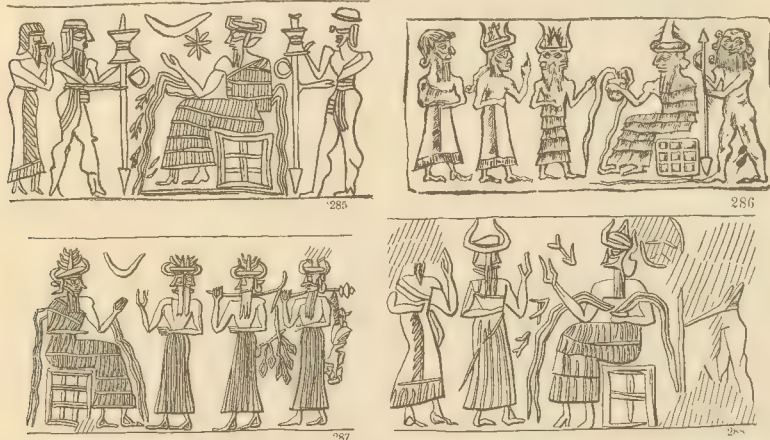 285
286
287